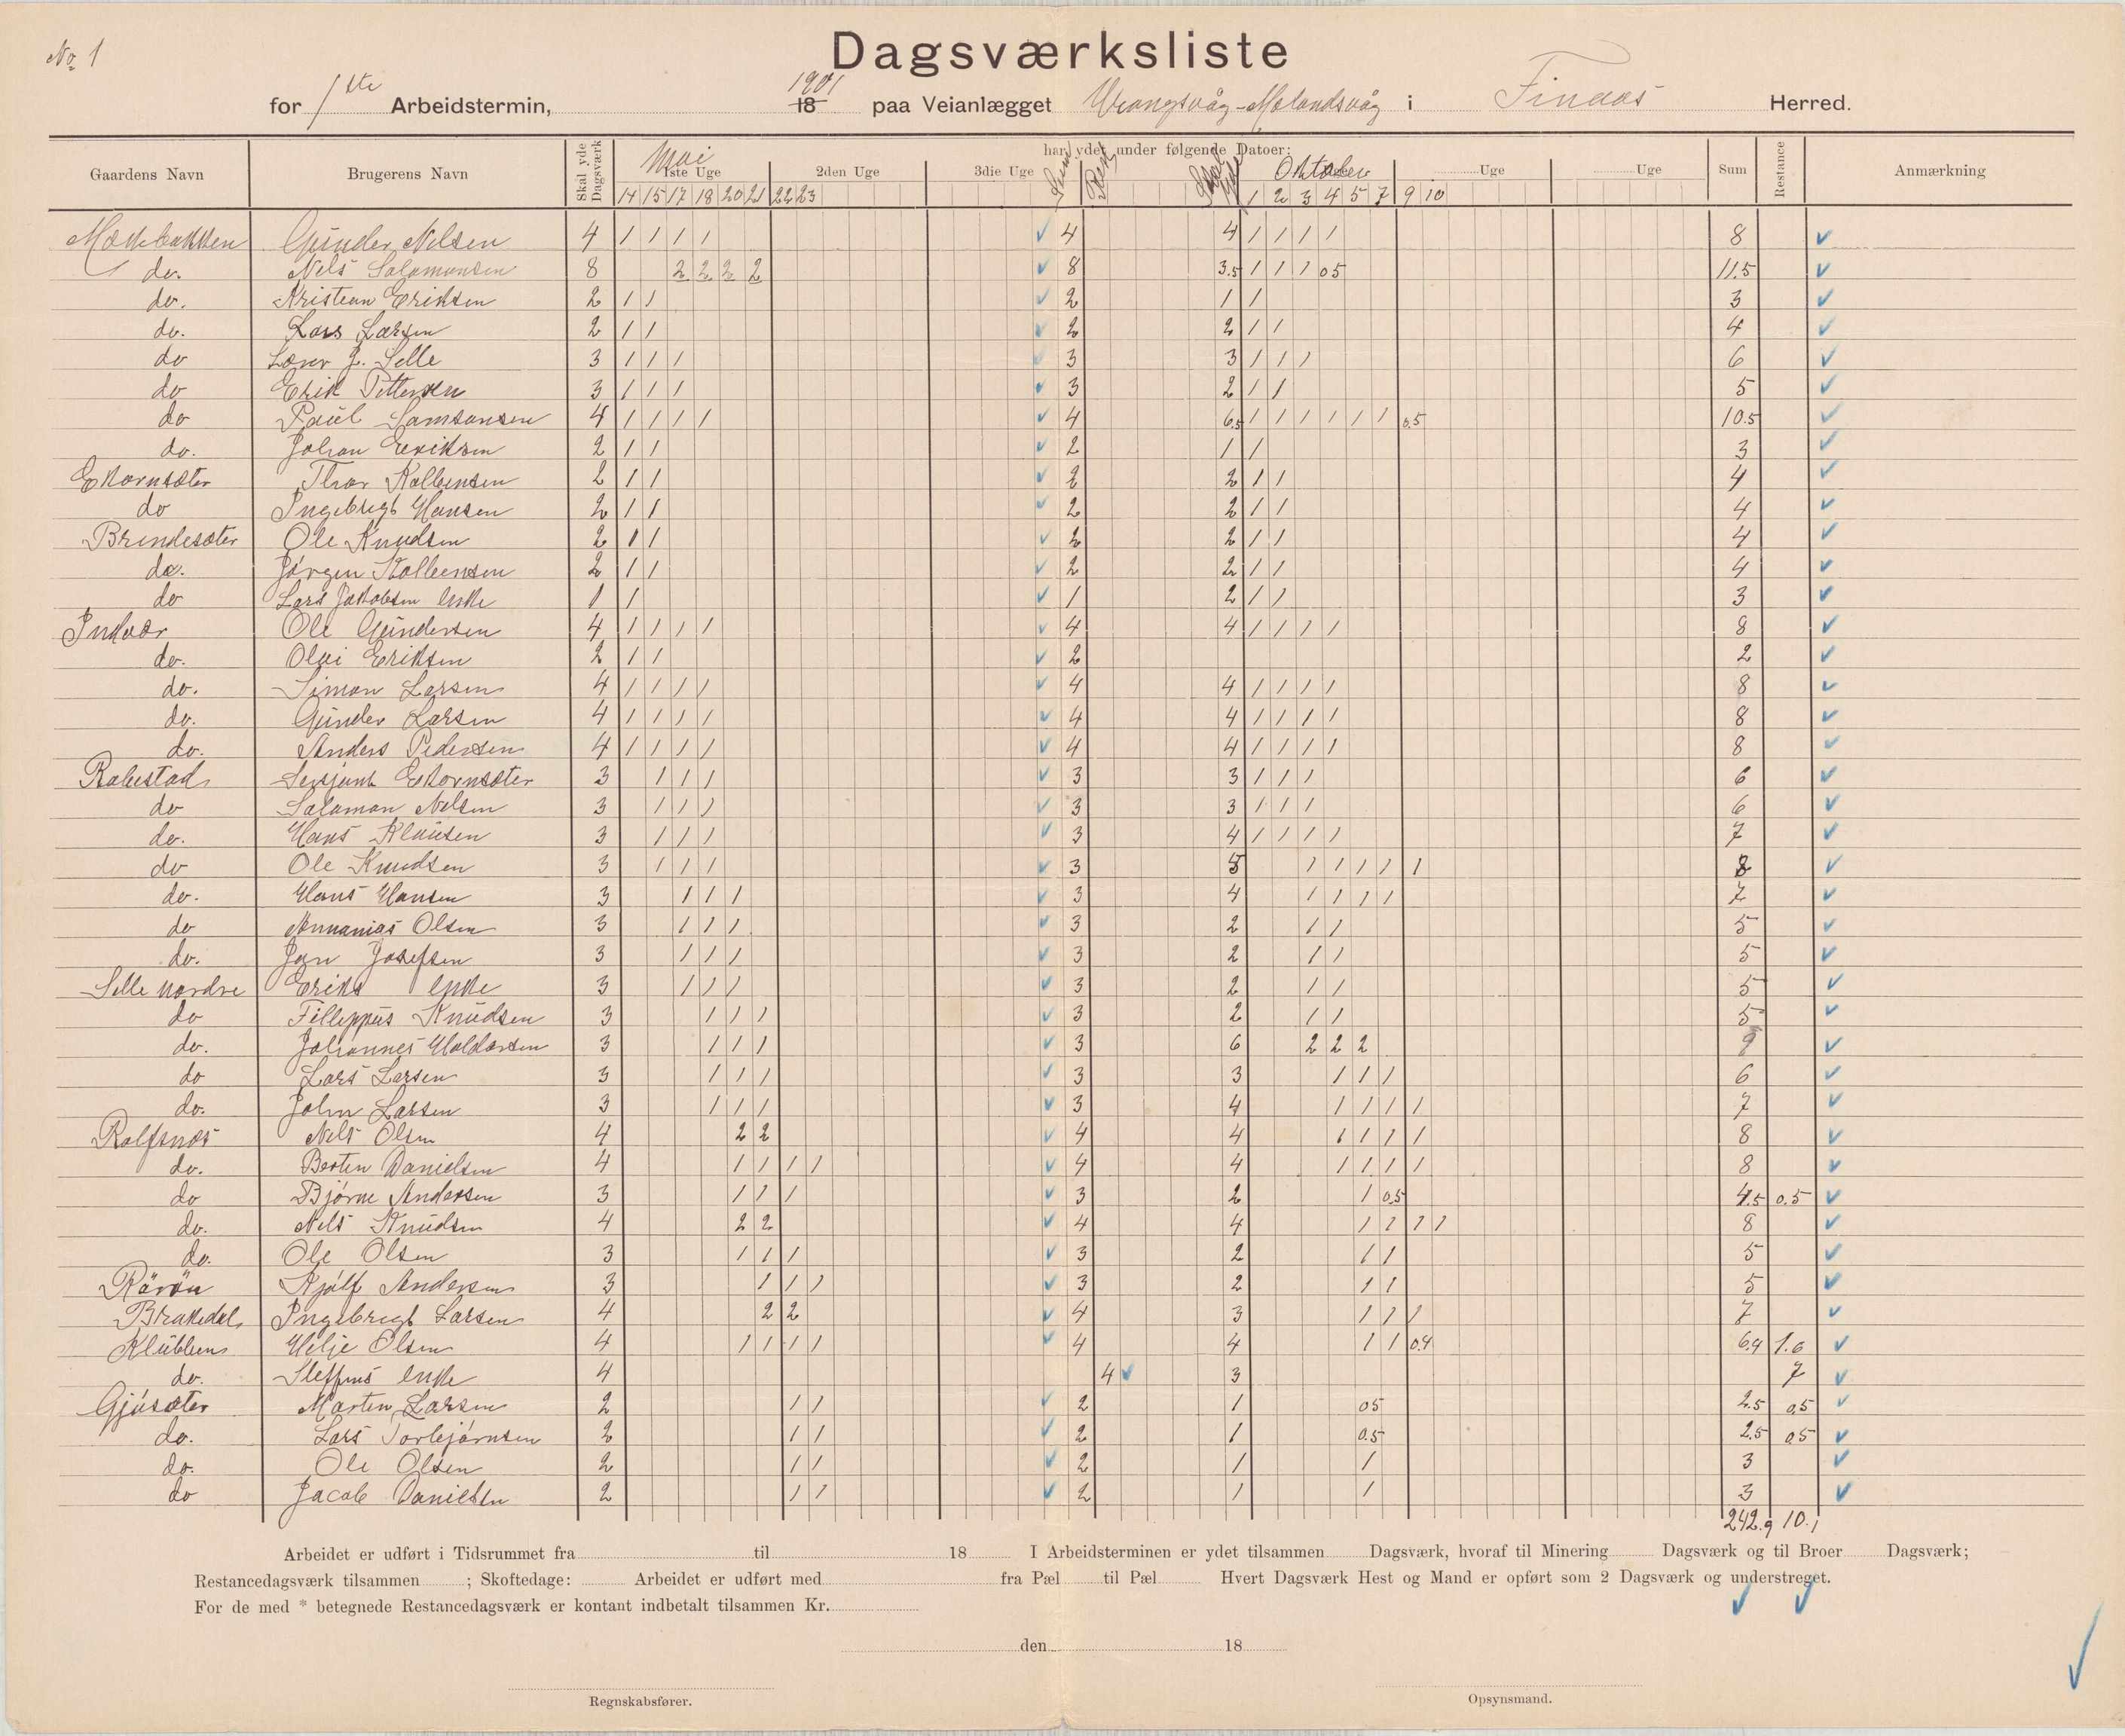 No 1
Dagsværksliste
for 1ste Arbeidstermin, 1901 18 paa Veianlægget Vrangsvåg-Mælandsvåg i Finaas Herred.
Gaardens Navn Brugerens Navn Skal yde Dagsværk har ydet under følgende Datoer: Sum Restance Anmærkning
Mai 1ste Uge 2den Uge 3die Uge Sum Rest Skal yde Oktober Uge Uge
14 15 17 18 20 21 22 23 1 2 3 4 5 7 9 10
Mækebakken Gunder Nelsen 4 1 1 1 1 4 4 1 1 1 1 8
do. Nels Salamonsen 8 2 2 2 2 8 3.5 1 1 1 05 11.5
do. Kristian Eriksen 2 1 1 2 1 1 3
do. Lars Larsen 2 1 1 2 2 1 1 4
do J. Selle 3 1 1 1 3 3 1 1 1 6
do Erik Pettersen 3 1 1 1 3 2 1 1 5
do Paul Samsonsen 4 1 1 1 1 4 6.5 1 1 1 1 1 1 0.5 10.5
do. Johan Eeriksen 2 1 1 2 1 1 3
Ekornsæter Thor Kolbensen 2 1 1 2 2 1 1 4
do Ingebrigt Hansen 2 1 1 2 2 1 1 4
Brendesæter Ole Knudsen 2 1 1 2 2 1 1 4
do. Jørgen Kolbensen 2 1 1 2 2 1 1 4
do Lars Jakobsen enke 1 1 1 2 1 1 3
Indvær Ole Gundersen 4 1 1 1 1 4 4 1 1 1 1 8
do. Olai Eriksen 2 1 1 2 2
do. Simon Larsen 4 1 1 1 1 4 4 1 1 1 1 8
do. Gunder Larsen 4 1 1 1 1 4 4 1 1 1 1 8
do. Anders Pedersen 4 1 1 1 1 4 4 1 1 1 1 8
Rabestad Sersjant Ekornsæter 3 1 1 1 3 3 1 1 1 6
do Salamon Nelsen 3 1 1 1 3 3 1 1 1 6
do. Hans Klausen 3 1 1 1 3 4 1 1 1 1 7
do Ole Knudsen 3 1 1 1 3 5 1 1 1 1 1 8
do. Hans Hansen 3 1 1 1 3 4 1 1 1 1 7
do Annanias Olsen 3 1 1 1 3 2 1 1 5
do. Jan Josefsen 3 1 1 1 3 2 1 1 5
Selle nordre Eriks enke 3 1 1 1 3 2 1 1 5
do Filippus Knudsen 3 1 1 1 3 2 1 1 5
do. Johannes Haldorsen 3 1 1 1 3 6 2 2 2 9
do Lars Larsen 3 1 1 1 3 3 1 1 1 6
do. John Larsen 3 1 1 1 3 4 1 1 1 1 7
Rolfsnæs Nels Olsen 4 2 2 4 4 1 1 1 1 8
do. Berten Danielsen 4 1 1 1 1 4 4 1 1 1 1 8
do Bjørne Andersen 3 1 1 1 3 2 1 0.5 4.5 0.5
do. Nels Knudsen 4 2 2 4 4 1 1 1 1 8
do. Ole Olsen 3 1 1 1 3 2 1 1 5
Rörön Kjølf Andersen 3 1 1 1 3 2 1 1 5
Brakedal Ingebrigt Larsen 4 2 2 4 3 1 1 1 7
Klubben Helje Olsen 4 1 1 1 1 4 4 1 1 0.4 6.4 1.6
do. Steffens enke 4 4 3 7
Gjøsæter Marten Larsen 2 1 1 2 1 05 2.5 0.5
do. Lars Torbjørnsen 2 1 1 2 1 0.5 2.5 0.5
do. Ole Olsen 2 1 1 2 1 1 3
do Jacob Danielsen 2 1 1 2 1 1 3
242.9 10.1
Arbeidet er udført i Tidsrummet fra til 18 I Arbeidsterminen er ydet tilsammen Dagsværk, hvoraf til Minering Dagsværk og til Broer Dagsværk;
Restancedagsværk tilsammen ; Skoftedage: Arbeidet er udført med fra Pæl til Pæl Hvert Dagsværk Hest og Mand er opført som 2 Dagsværk og understreget.
For de med * betegnede Restancedagsværk er kontant indbetalt tilsammen Kr.
den 18
Regnskabsfører. Opsynsmand.